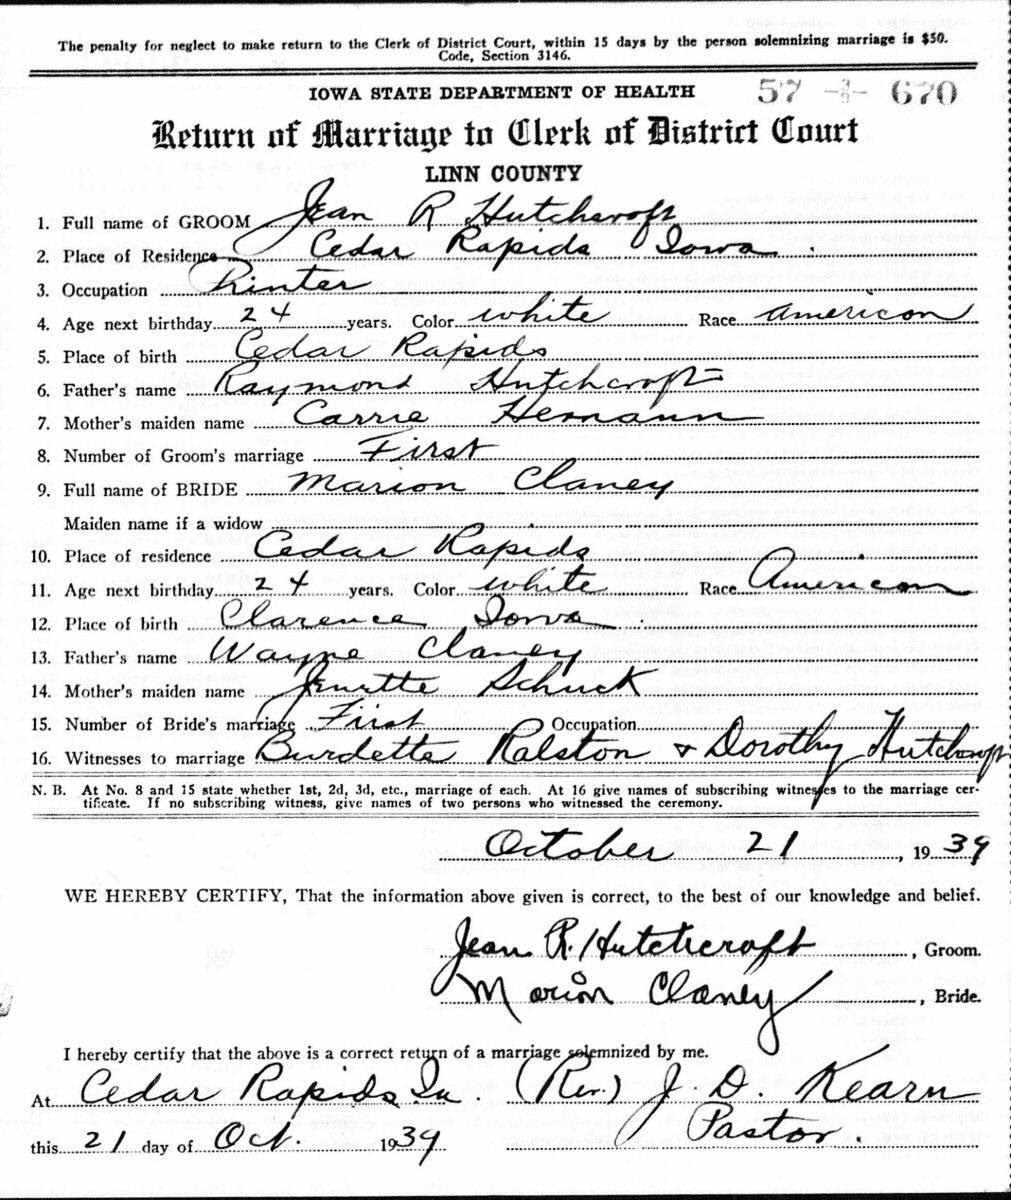 The penalty for neglect to make return to the Clerk of District Court, within 15 days by the person solemnizing marriage is $50.
Code, Section 3146.
IOWA STATE DEPARTMENT OF HEALTH 57 - 670
Return of Marriage to Clerk of District Court
LINN COUNTY
1. Full name of GROOM Jean R Hutchcroft
2. Place of Residence Cedar Rapids Iowa
3. Occupation Printer
4. Age next birthday 24 years. Color white Race American
5. Place of birth Cedar Rapids
6. Father's name Raymond Hutchcroft
7. Mother's maiden name Carrie Hemann
8. Number of Groom's marriage First
9. Full name of BRIDE Marion Claney
Maiden name if a widow
10. Place of residence Cedar Rapids
11. Age next birthday 24 years. Color white Race American
12. Place of birth Clarence Iowa
13. Father's name Wayne Claney
14. Mother's maiden name Jenette Schuck
15. Number of Bride's marriage First Occupation
16. Witnesses to marriage Burdette Ralston & Dorothy Hutchcroft
N. B. At No. 8 and 15 state whether 1st, 2d, 3d, etc., marriage of each. At 16 give names of subscribing witnesses to the marriage cer-
tificate. If no subscribing witness, give names of two persons who witnessed the ceremony.
October 21, 1939
WE HEREBY CERTIFY, That the information above given is correct, to the best of our knowledge and belief.
Jean R. Hutchcroft, Groom.
Marion Claney, Bride.
I hereby certify that the above is a correct return of a marriage solemnized by me.
At Cedar Rapids, Ia. (Rev.) J. D. Kearn
Pastor.
this 21 day of Oct. 1939